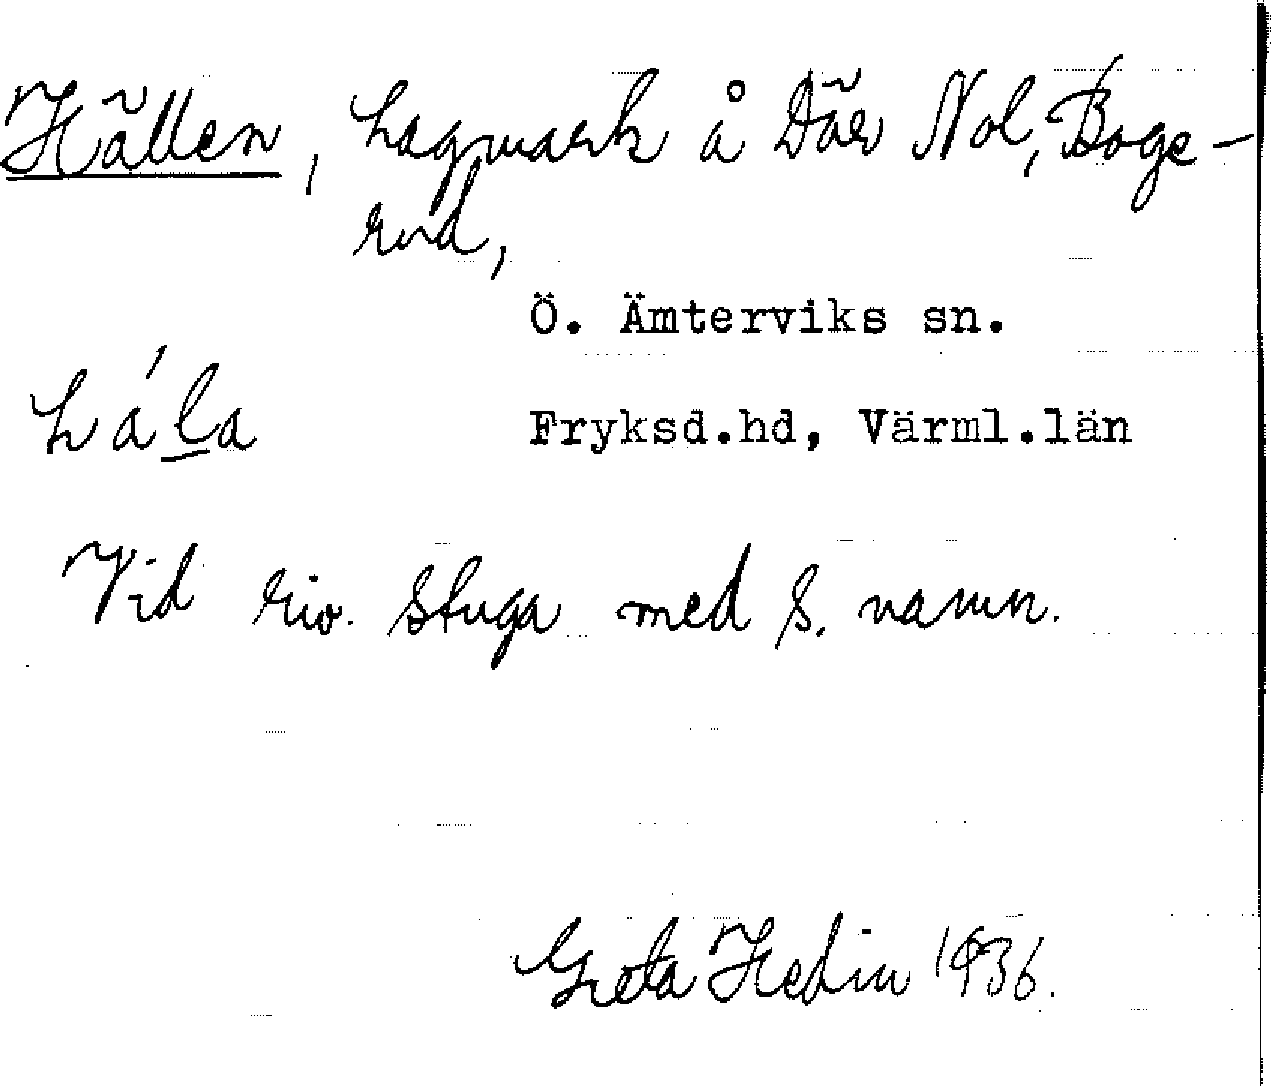 Hällen, hagmark å Där Nol, Boge-
rud,
Ö. Ämterviks sn.
hála Fryksd.hd, Värml.län
Vid riv. stuga med s. namn.
Greta Hedin 1936.